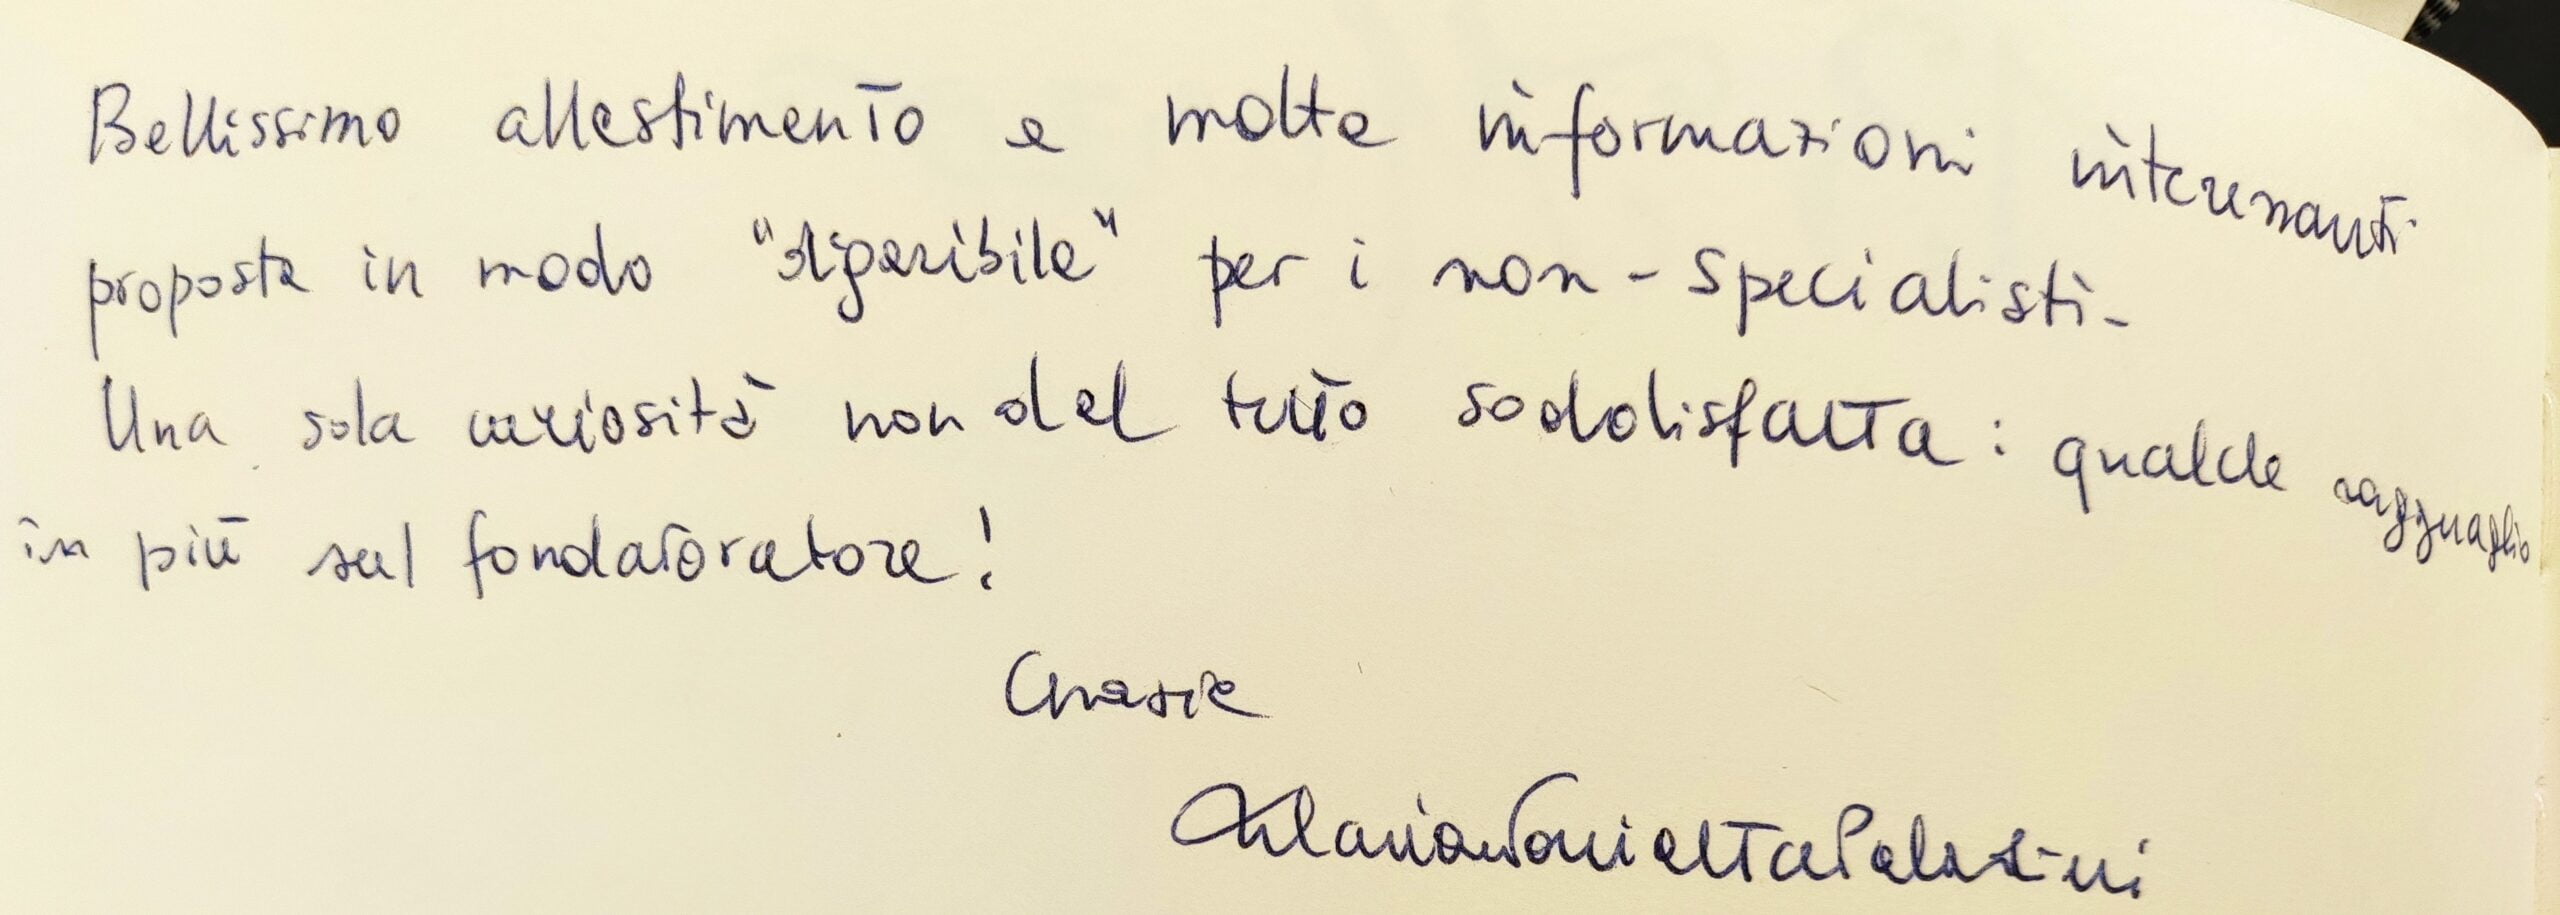 Bellissimo allestimento e molte informazioni interessanti
proposte in modo "digeribile" per i non-specialisti-
Una sola curiosità non del tutto soddisfatta: qualche ragguaglio
in più sul fondatoratore!
Grazie